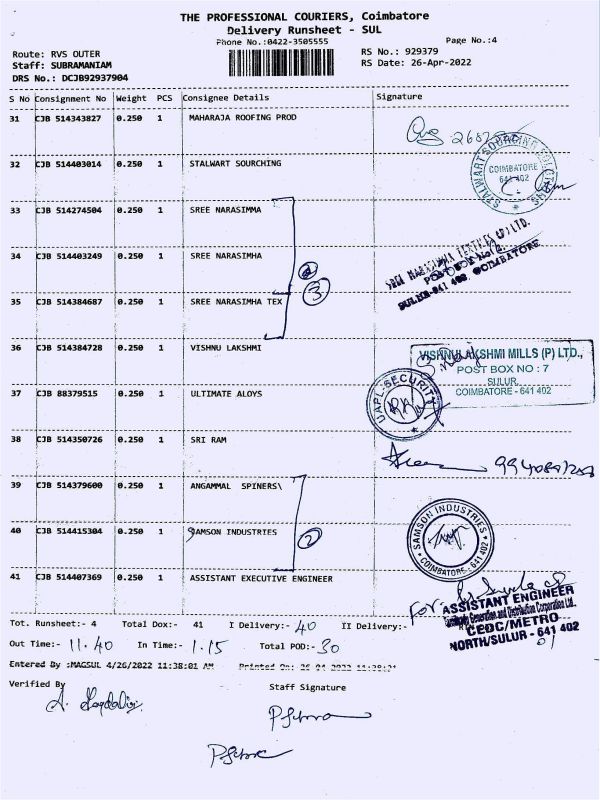 THE PROFESSIONAL COURIERS, Coimbatore
Delivery Runsheet - SUL
Phone No.:0422-3505555
Page No.:4
Route: RVS OUTER
RS No.: 929379
Staff: SUBRAMANIAM
RS Date: 26-Apr-2022
DRS No.: DCJB92937904
S No Consignment No Weight PCS Consignee Details Signature
31 CJB 514343827 0.250 1 MAHARAJA ROOFING PROD
32 CJB 514403014 0.250 1 STALWART SOURCHING
STALWART SOURCING SOLUTIONS
COIMBATORE
641 402
33 CJB 514274504 0.250 1 SREE NARASIMMA
34 CJB 514403249 0.250 1 SREE NARASIMHA
SREE NARASIMHA TEXTILES (P) LTD.
SULUR-641 402, COIMBATORE
35 CJB 514384687 0.250 1 SREE NARASIMHA TEX
3
36 CJB 514384728 0.250 1 VISHNU LAKSHMI
VISHNULAKSHMI MILLS (P) LTD.,
POST BOX NO : 7
SULUR,
COIMBATORE - 641 402
37 CJB 88379515 0.250 1 ULTIMATE ALOYS
UAPL-SECURITY
38 CJB 514350726 0.250 1 SRI RAM
39 CJB 514379600 0.250 1 ANGAMMAL SPINERS\
40 CJB 514415304 0.250 1 SAMSON INDUSTRIES
2
SAMSON INDUSTRIES
COIMBATORE - 641 402
41 CJB 514407369 0.250 1 ASSISTANT EXECUTIVE ENGINEER
For
ASSISTANT ENGINEER
Generation and Distribution Corporation Ltd.
CEDC/METRO
NORTH/SULUR - 641 402
Tot. Runsheet:- 4 Total Dox:- 41 I Delivery:- 40 II Delivery:-
Out Time:- 11.40 In Time:- 1.15 Total POD:- 30
Entered By :MAGSUL 4/26/2022 11:38:01 AM Printed On:
Verified By
Staff Signature